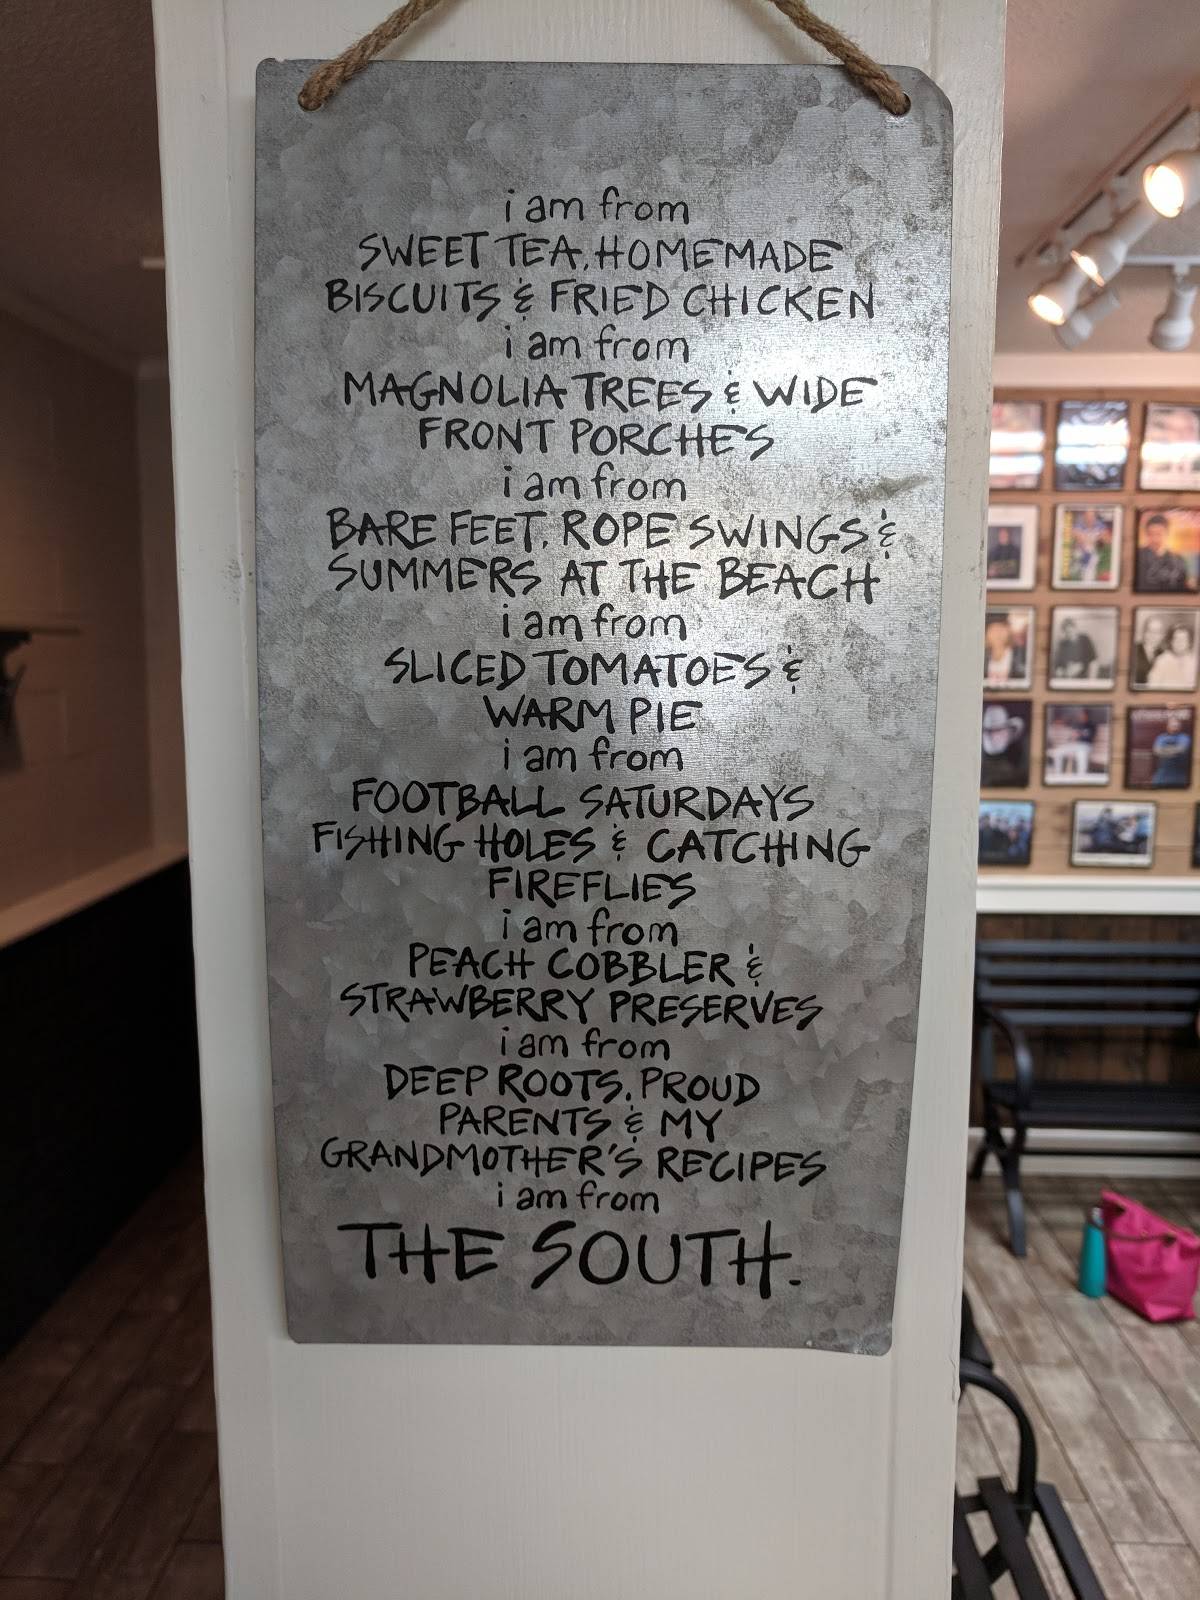 i am from
SWEET TEA, HOMEMADE
BISCUITS & FRIED CHICKEN
i am from
MAGNOLIA TREES & WIDE
FRONT PORCHES
i am from
BARE FEET, ROPE SWINGS &
SUMMERS AT THE BEACH
i am from
SLICED TOMATOES &
WARM PIE
i am from
FOOTBALL SATURDAYS
FISHING HOLES & CATCHING
FIREFLIES
i am from
PEACH COBBLER &
STRAWBERRY PRESERVES
i am from
DEEP ROOTS, PROUD
PARENTS & MY
GRANDMOTHER'S RECIPES
i am from
THE SOUTH.